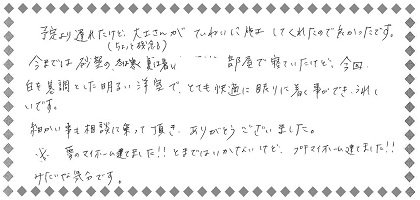 予定より遅れたけど、大工さんが ていねいに施工してくれたので良かったです。
(ちょっと残念)
今までは砂壁の 冬は寒く夏は暑い 部屋で寝ていたけど、今回、
白を基調とした明るい洋室で、とても快適に眠りに着く事ができ、うれし
いです。
細かい事も相談に乗って頂き、ありがとうございました。
夢のマイホーム建てました!! とまではいかないけど、プチマイホーム建てました!!
みたいな気分です。